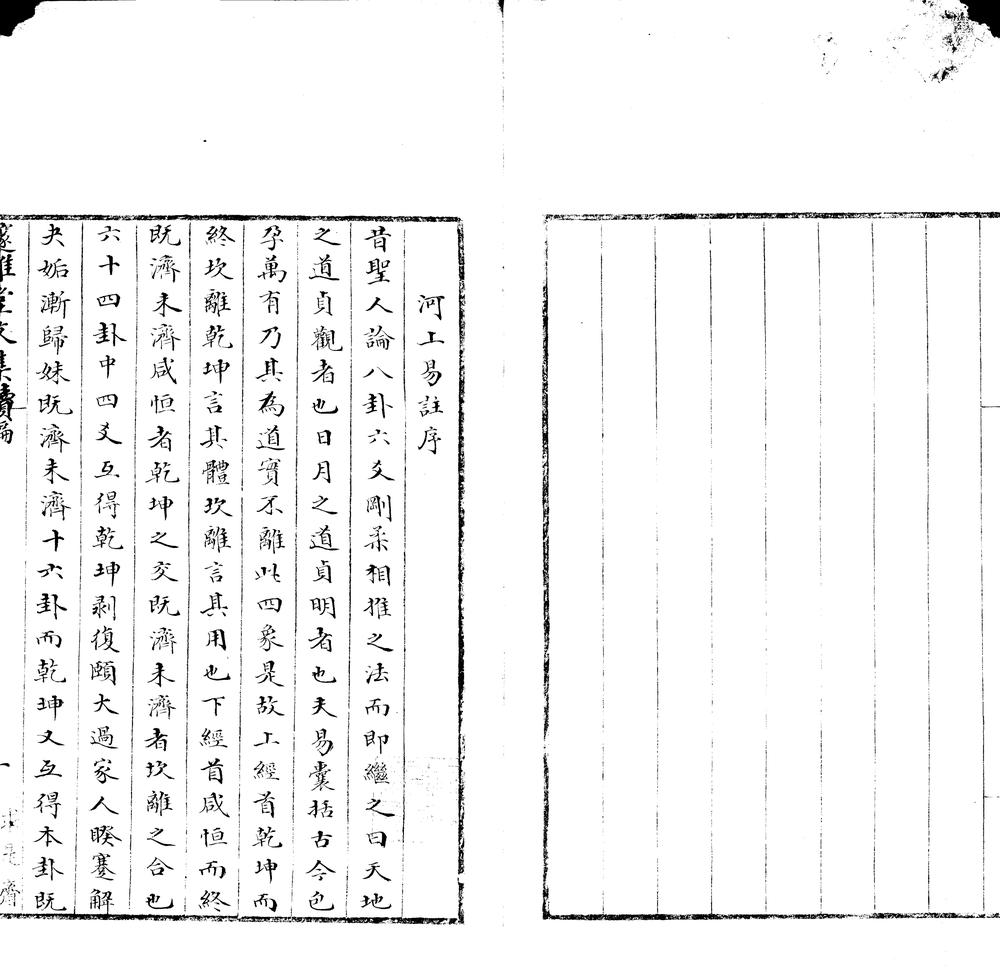 河上易註序
昔聖人論八卦六爻剛柔相推之法而即繼之曰天地
之道貞觀者也日月之道貞明者也夫易囊括古今包
孕萬有乃其為道實不離此四象是故上經首乾坤而
終坎離乾坤言其體坎離言其用也下經首咸恒而終
既濟未濟咸恒者乾坤之交既濟未濟者坎離之合也
六十四卦中四爻互得乾坤剥復頤大過家人睽蹇解
夬姤漸歸妹既濟未濟十六卦而乾坤又互得本卦既
邃雅堂文集續編
一